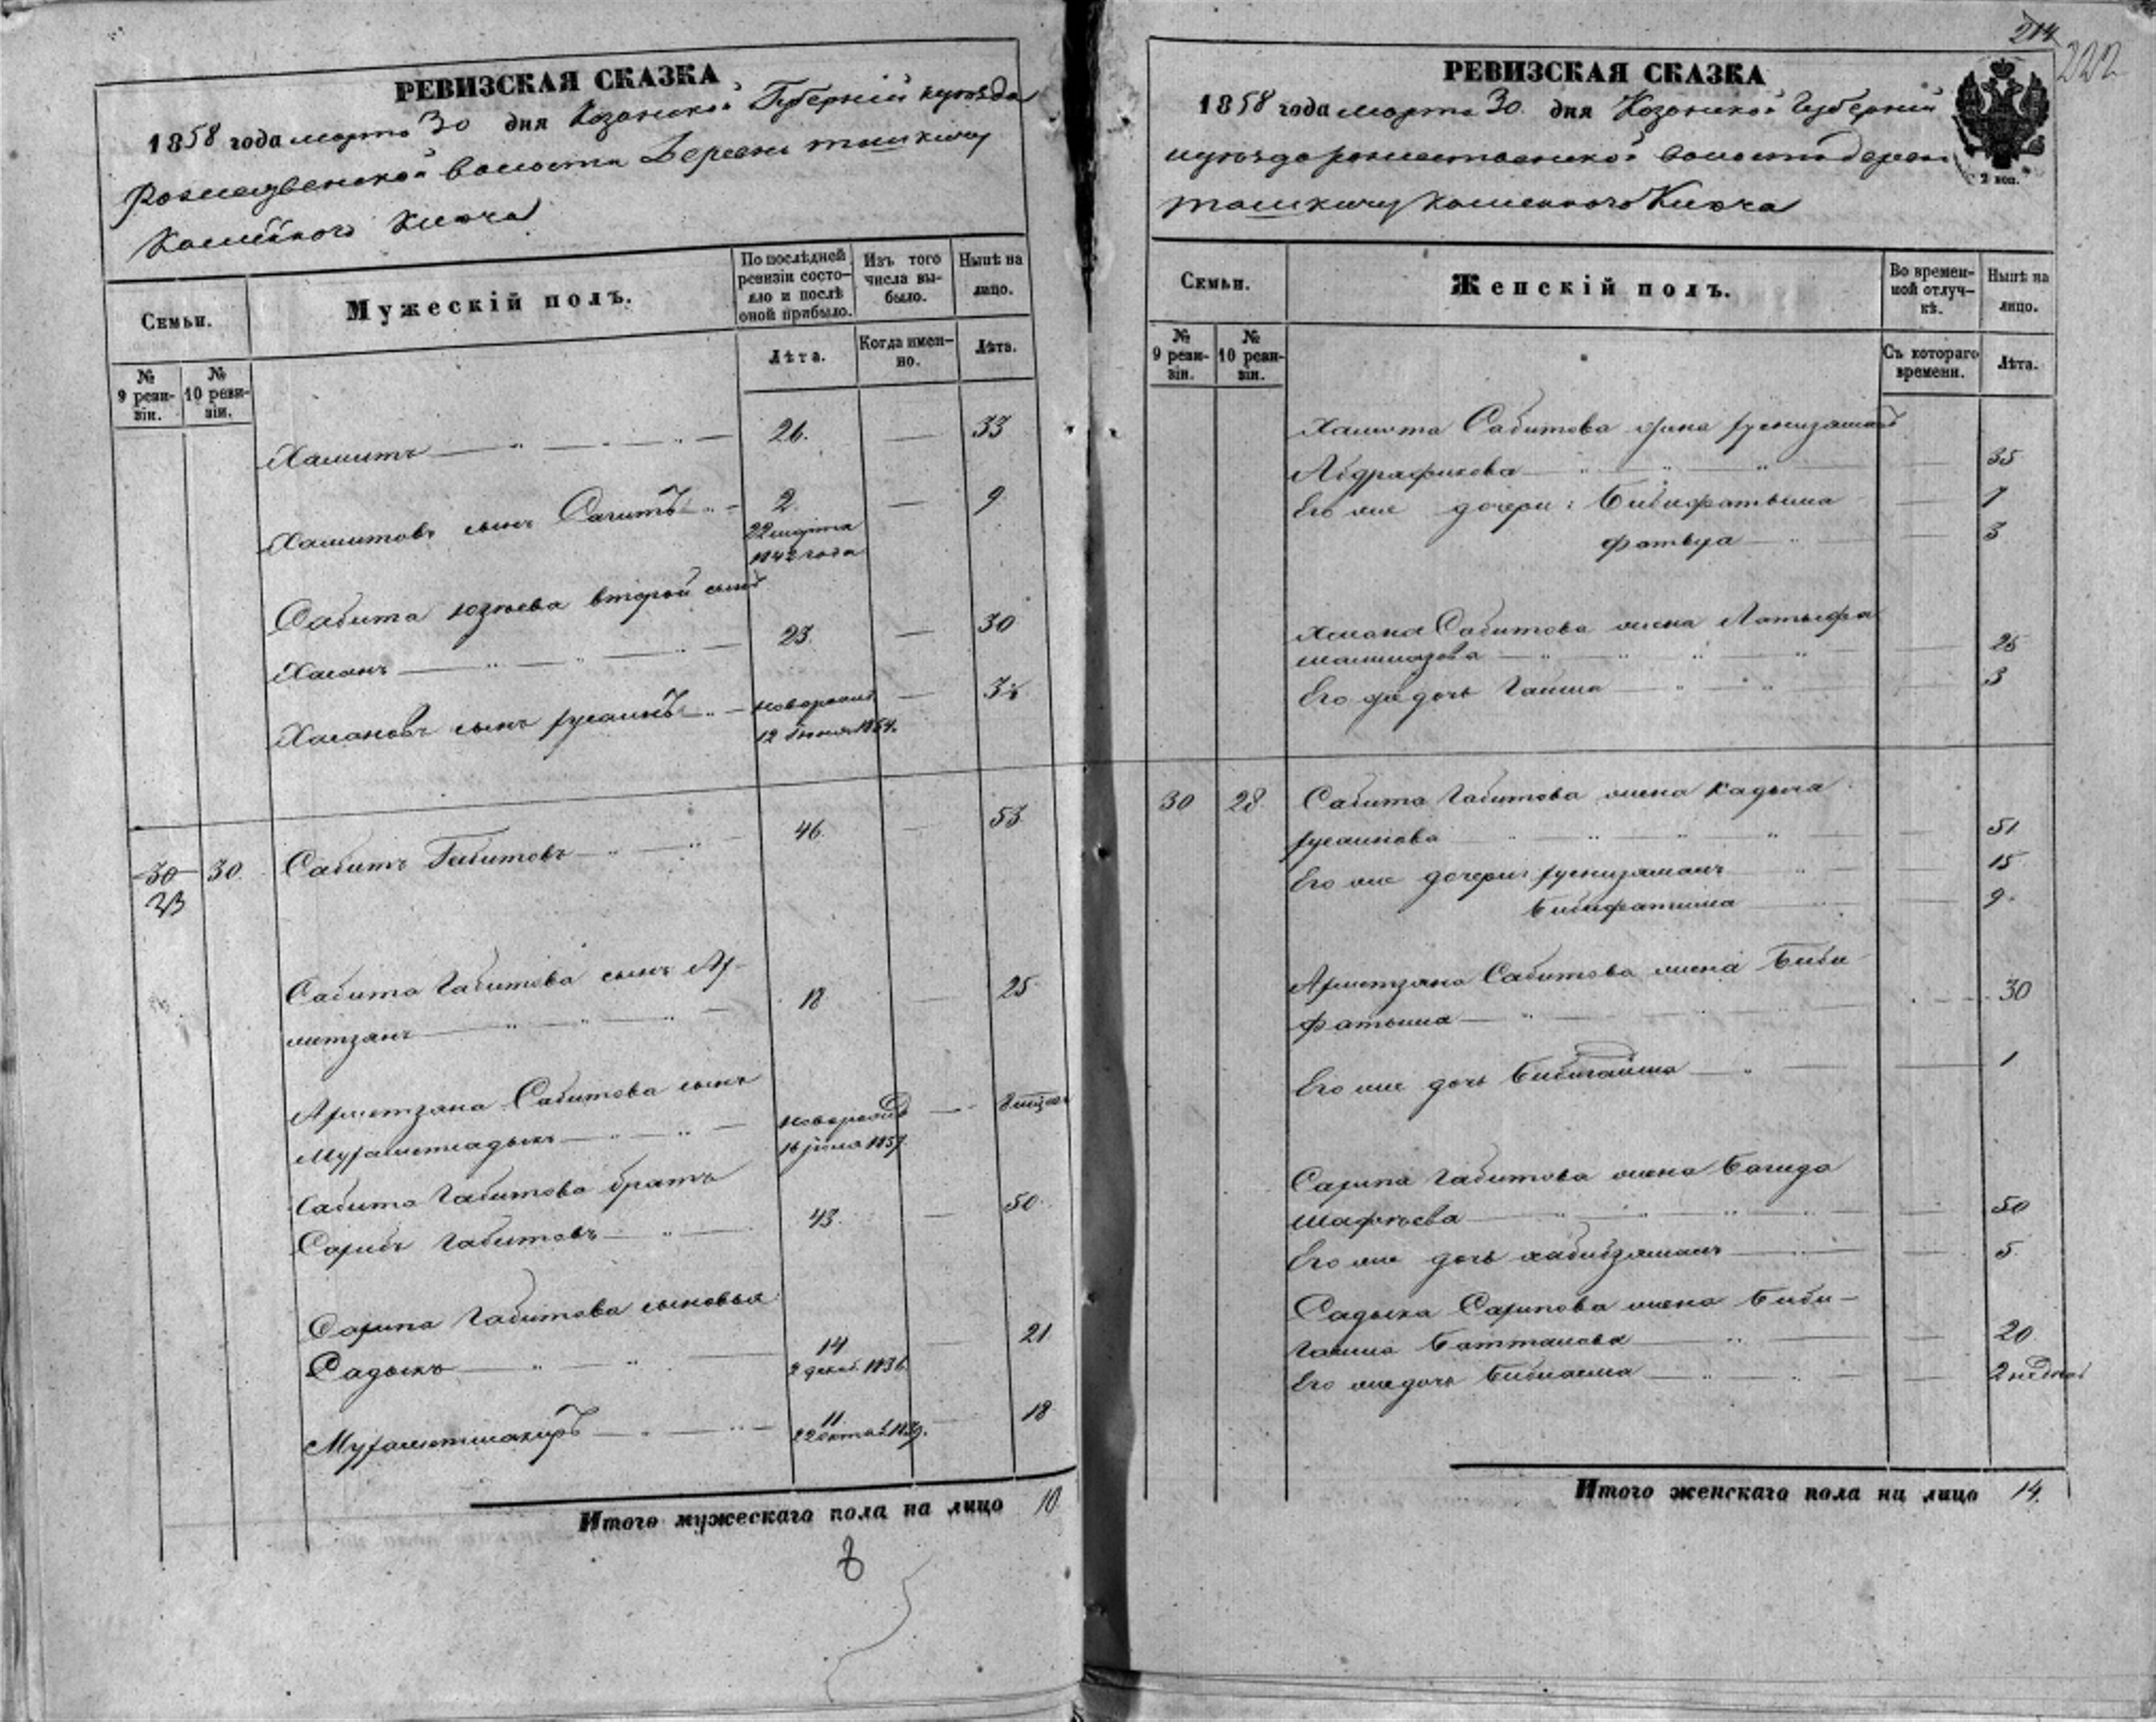 РЕВИЗСКАЯ СКАЗКА
1858 года марта 30 дня Казанской Губерніи
волости Деревни ташкичу
Каменного Ключа
Семьи.
Мужескій полъ.
По послѣдней ревизіи состояло и послѣ оной прибыло.
Изъ того числа выбыло.
Нынѣ на лицо.
№ 9 ревизіи.
№ 10 ревизіи.
Лѣта.
Когда именно.
Лѣта.
Хамитъ 26. 33
Хамитовъ сынъ Сагитъ 2. 9
22 марта
1842 года
Сабита юзеева второй сынъ
Хасанъ 23. 30
Хасановъ сынъ хусаинъ новорожд. 3¾
12 1854.
30 30. Сабитъ Габитовъ 46. 53
23
Сабита Габитова сынъ Ах-
метзянъ 18 25
Ахметзяна Сабитова сынъ
Мухаметсадыкъ новорожд
16 1857.
Сабита Габитова братъ
Сахибъ Габитовъ 43. 50
Сахипа Габитова сыновья
Садыкъ 14 21
2 декаб. 1836
Мухаметшакиръ 11 18
22 октяб. 1839.
Итого мужескаго пола на лицо 10
8
214
222
РЕВИЗСКАЯ СКАЗКА
1858 года марта 30 дня Казанской Губерніи
волости дерев
ташкичу Каменного Ключа
2 коп.
Семьи.
Женскій полъ.
Во временной отлучкѣ.
Нынѣ на лицо.
№ 9 ревизіи.
№ 10 ревизіи.
Съ котораго времени.
Лѣта.
Хамита Сабитова жена
Абдрафикова 35
Его же дочери: Бибифатыма 7
3
Хасана Сабитова жена Латыфа
26
Его же дочь Гайша 3
30 28. Сабита Габитова жена Кадыча
хусаинова 51
Его же дочери: хуснизяманъ 15
Бибифатима 9
Ахметзяна Сабитова жена Биби-
фатыма 30
Его же дочь Бибигайша 1
Сахипа Габитова жена Багида
50
Его же дочь хабибзяманъ 5
Садыка Сахипова жена Биби-
20
Его же дочь Бибиасма
Итого женскаго пола на лицо 14.